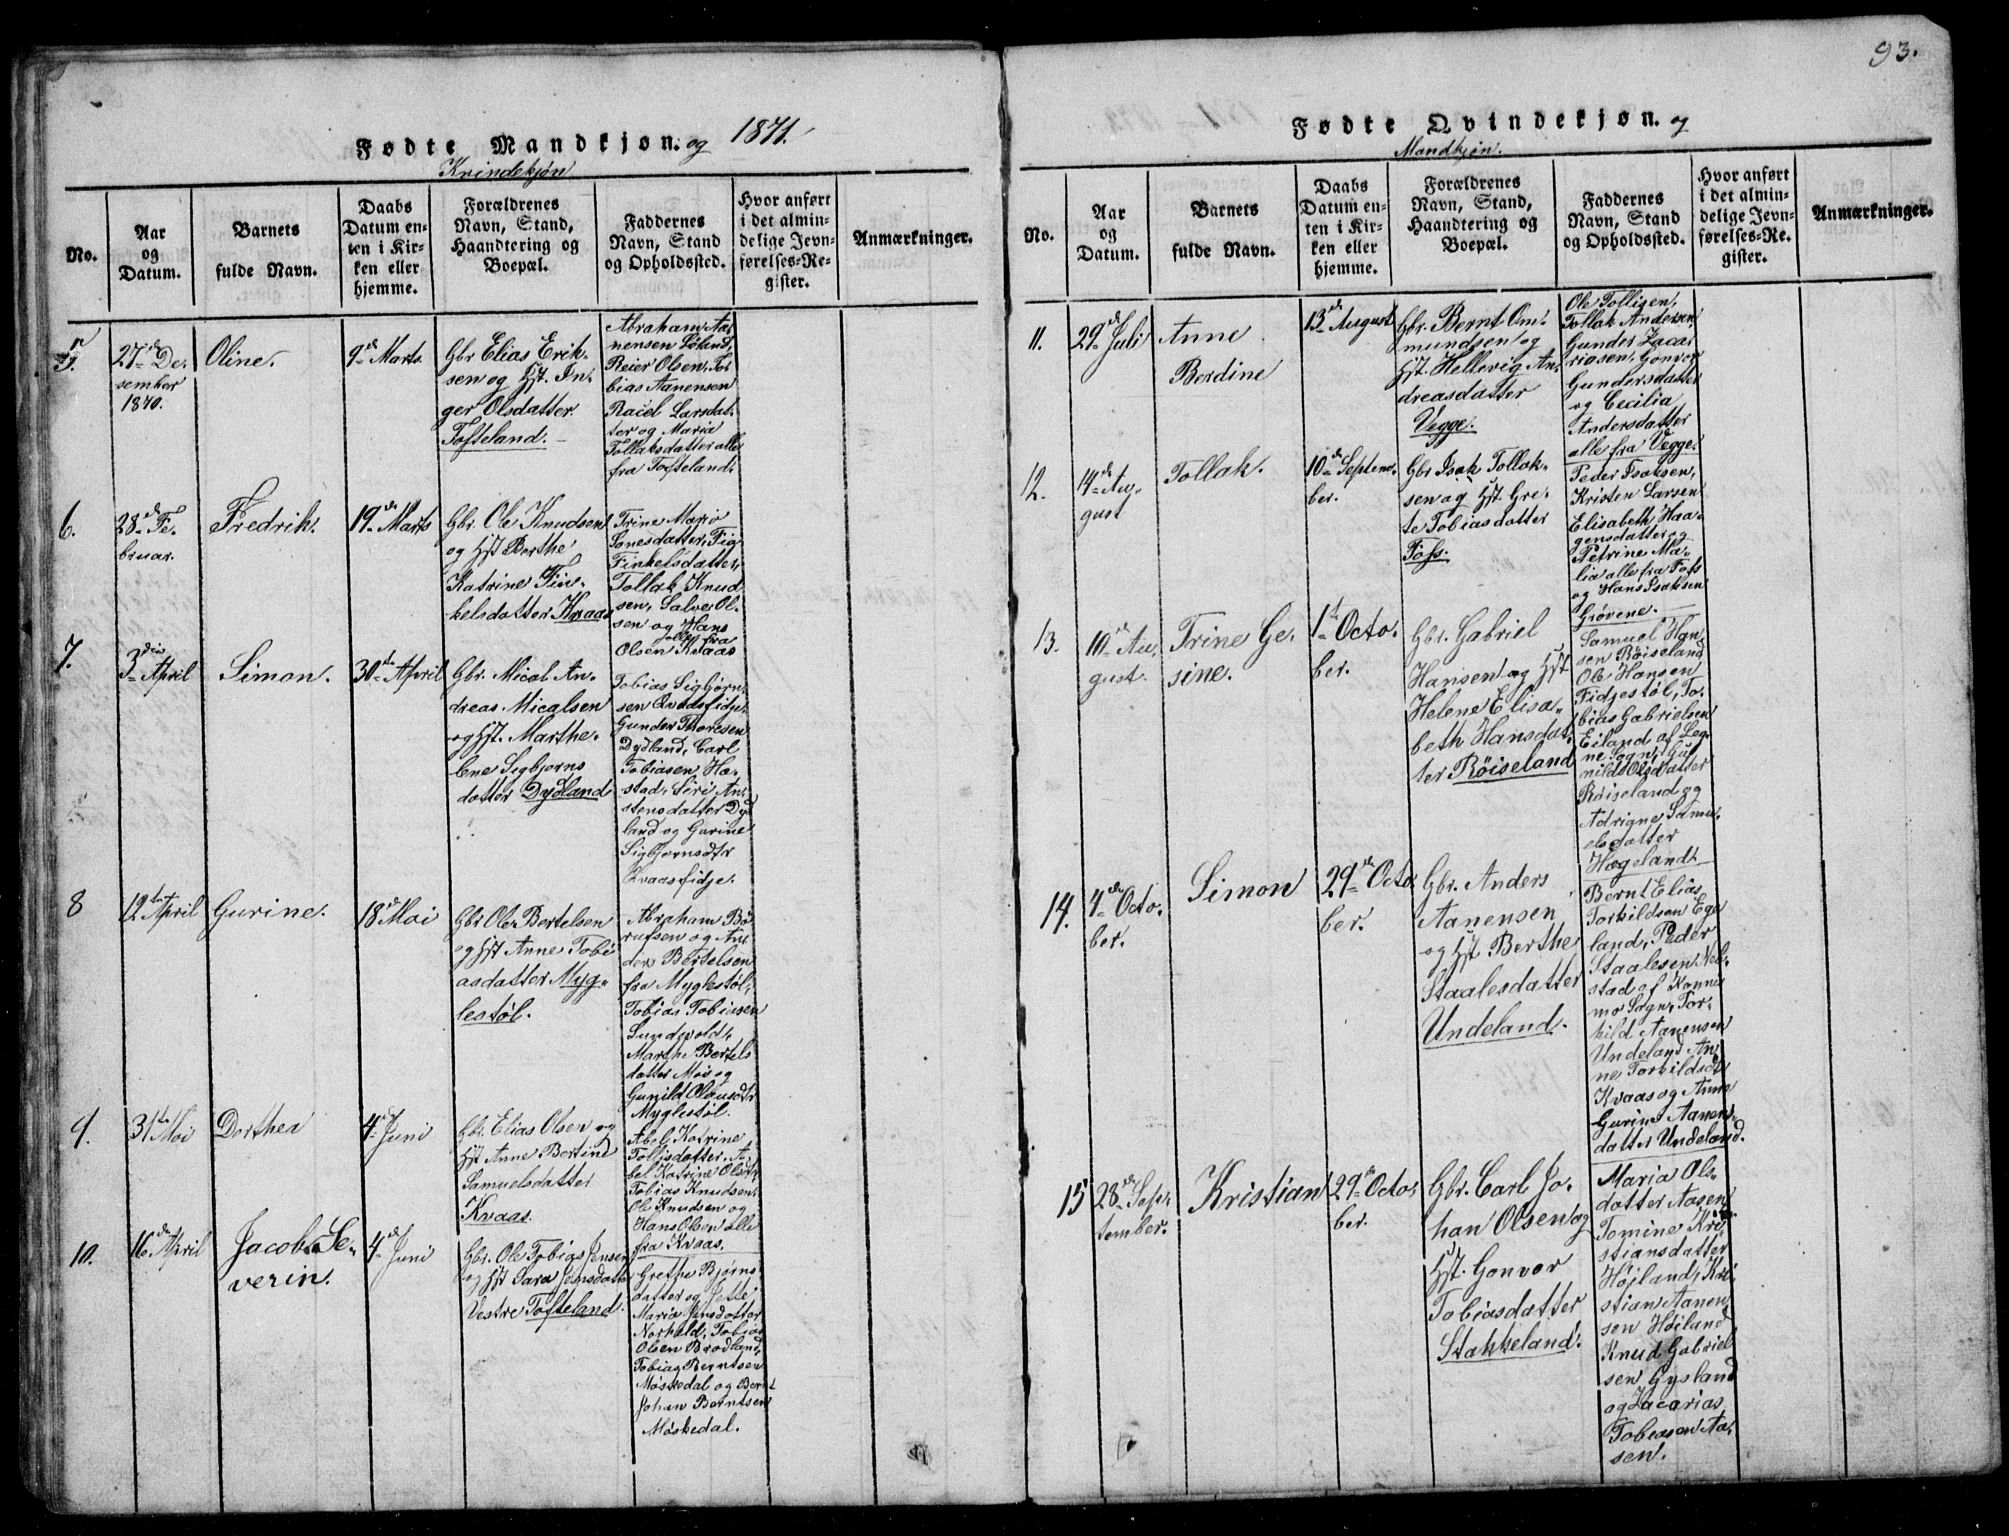 93.
Fødte Mandkjøn. og 1871.
Kvindekjøn
No.
Aar
og
Datum.
Barnets
fulde Navn.
Daabs
Datum en-
ten i Kir-
ken eller
hjemme.
Forældrenes
Navn, Stand,
Haandtering og
Boepæl.
Faddernes
Navn, Stand
og Opholdssted.
Hvor anført
i det almin-
delige Jevn-
førelses-Re-
gister.
Anmærkninger.
5.
27de De-
sember
1870.
Oline.
9de Marts
Gbr Elias Erik-
sen og Hst. In-
ger Olsdatter
Tofteland.
Abraham Aa-
nensen
Reier Olsen, To-
bias Aanensen
Racel Larsdat-
ter og Maria
Tollaksdatter alle
fra Tofteland.
6.
28de Fe-
bruar.
Fredrik.
19de Marts
Gbr. Ole Knudsen
og Hst Berthe
Katrine Fin-
kelsdatter Kvaas
Trine Marie
Finkelsdatter,
Tollak Knud-
sen, Salve Ol-
sen og Hans
Olsen alle fra Kvaas
7.
3die April
Simon.
30te April
Gbr. Mical An-
dreas Micalsen
og Hst. Marthe-
lene Sigbjørns
datter Dydland
Tobias Sigbjørn-
sen Qvaasfidje,
Gunder Thoresen
Dydland, Carl
Tobiasen Hæ-
stad, Siri An-
stensdatter Dyd
land og Gurine
Sigbjørnsdtr
Kvaasfidje.
8
12te April
Gurine.
18de Mai
Gbr Ole Bertelsen
og Hst Anne Tobi-
asdatter Myg-
lestøl.
Abraham Bø-
rufsen og An-
ders Bertelsen
fra Myglestøl,
Tobias Tobiasen
Marthe Bertels
datter Moi og
Gunild Olausdtr
Myglestøl.
9.
31te Mai
Dorthea
4de Juni
Gbr. Elias Olsen og
Hst Anne Bertine
Samuelsdatter
Kvaas.
Abel Katrine
Tollisdatter, A-
bel Katrine Olsdtr
Tobias Knudsen,
Ole Knudsen og
Hans Olsen alle
fra Kvaas.
10.
16de April
Jacob Se-
verin.
4de Juni
Gbr. Ole Tobias Jensen
og Hst Sara Jensdatter
Vestre Tofteland.
Grethe Bjørns
datter og Jette
Maria Jensdatter
Tobias
Olsen Brodland,
Tobias Berntsen
Møskedal og Bernt
Johan Berntsen
Møskedal.
Fødte Qvindekjøn. og
Mandkjøn.
No.
Aar
og
Datum.
Barnets
fulde Navn.
Daabs
Datum en-
ten i Kir-
ken eller
hjemme.
Forældrenes
Navn, Stand,
Haandtering og
Boepæl.
Faddernes
Navn, Stand
og Opholdssted.
Hvor anført
i det almin-
delige Jevn-
førelses-Re-
gister.
Anmærkninger.
11.
29de Juli
Anne
Berdine
13de August
Gbr. Bernt Om-
mundsen og
Hst. Hellevig An-
dreasdatter
Vegge.
Ole Tollisen,
Tollak Andersen,
Gunder Zaca-
riasen, Gonvor
Gundersdatter
og Cecilia
Andersdatter
alle fra Vegge.
12.
14de Au-
gust
Tollak.
10de Septem-
ber.
Gbr Isak Tollak-
sen og Hst. Gre-
te Tobiasdatter
Foss.
Peder Isaksen,
Kristen Larsen
Elisabeth Haa-
gensdatter og
Petrine Ma-
lia alle fra Foss
og Hans Isaksen
Grøvene.
13.
10de Au-
gust.
Trine Ge-
sine.
1ste Octo-
ber.
Gbr. Gabriel
Hansen og Hst
Helene Elisa-
beth Hansdat-
ter Røiseland
Samuel Han-
sen Røiseland
Ole Hansen
Fidjestøl, To-
bias Gabrielsen
Eiland af Log-
ne Sogn, Gu-
nild Olsdatter
Røiseland og
Adrigne Samu-
elsdatter
Hægeland.
14.
4de Octo-
ber.
Simon
29de Octo-
ber.
Gbr. Anders
Aanensen
og Hst Berthe
Staalesdatter
Undeland.
Bernt Elias
Torkildsen Ege
land, Peder
Staalesen
stad af Konnes
mo Sogn, Tor-
kild Aanensen
Undeland An-
ne Torkildsdtr
Kvaas og Anne
Gurine Aanens-
datter Undeland.
15
28de Sep-
tember.
Kristian
29de Octo-
ber.
Gbr. Carl Jo-
han Olsen og
Hst. Gonvor
Tobiasdatter
Stakkeland.
Maria Ols-
datter Aasen
Tomine Kri-
stiansdatter
Høiland, Kri-
stian Aanen-
sen Høiland
Knud Gabriel
sen Gysland
og Zacarias
Tobiasen Aa-
sen.